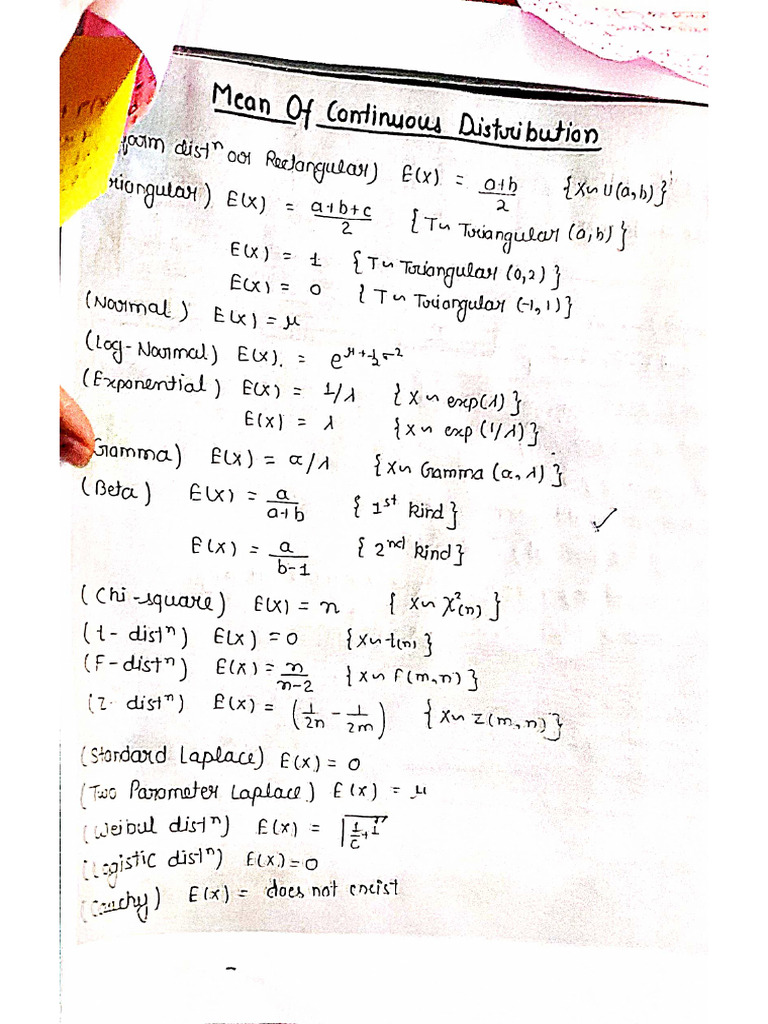 Mean Of Continuous Distribution
form distⁿ oor Rectangular) E(X) = a+b/2 {X~U(a,b)}
riangular) E(X) = a+b+c/2 {T~ Triangular (a,b)}
E(X) = 1 {T~ Triangular (0,2)}
E(X) = 0 {T~ Triangular (-1,1)}
(Normal) E(X) = μ
(Log-Normal) E(X) = e^μ+½σ²
(Exponential) E(X) = 1/λ {X~ exp(λ)}
E(X) = λ {X~ exp (1/λ)}
Gamma) E(X) = α/λ {X~ Gamma (α, λ)}
(Beta) E(X) = a/a+b {1st kind}
E(X) = a/b-1 {2nd kind}
(Chi-square) E(X) = n {X~ χ²(n)}
(t-distⁿ) E(X) = 0 {X~t(n)}
(F-distⁿ) E(X) = n/n-2 {X~ F(m,n)}
(Z-distⁿ) E(X) = (1/2n - 1/2m) {X~ Z(m,n)}
(Standard Laplace) E(X) = 0
(Two Parameter Laplace) E(X) = μ
(Weibul distⁿ) E(X) = Γ1/c+1
(Logistic distⁿ) E(X) = 0
(Cauchy) E(X) = does not encist